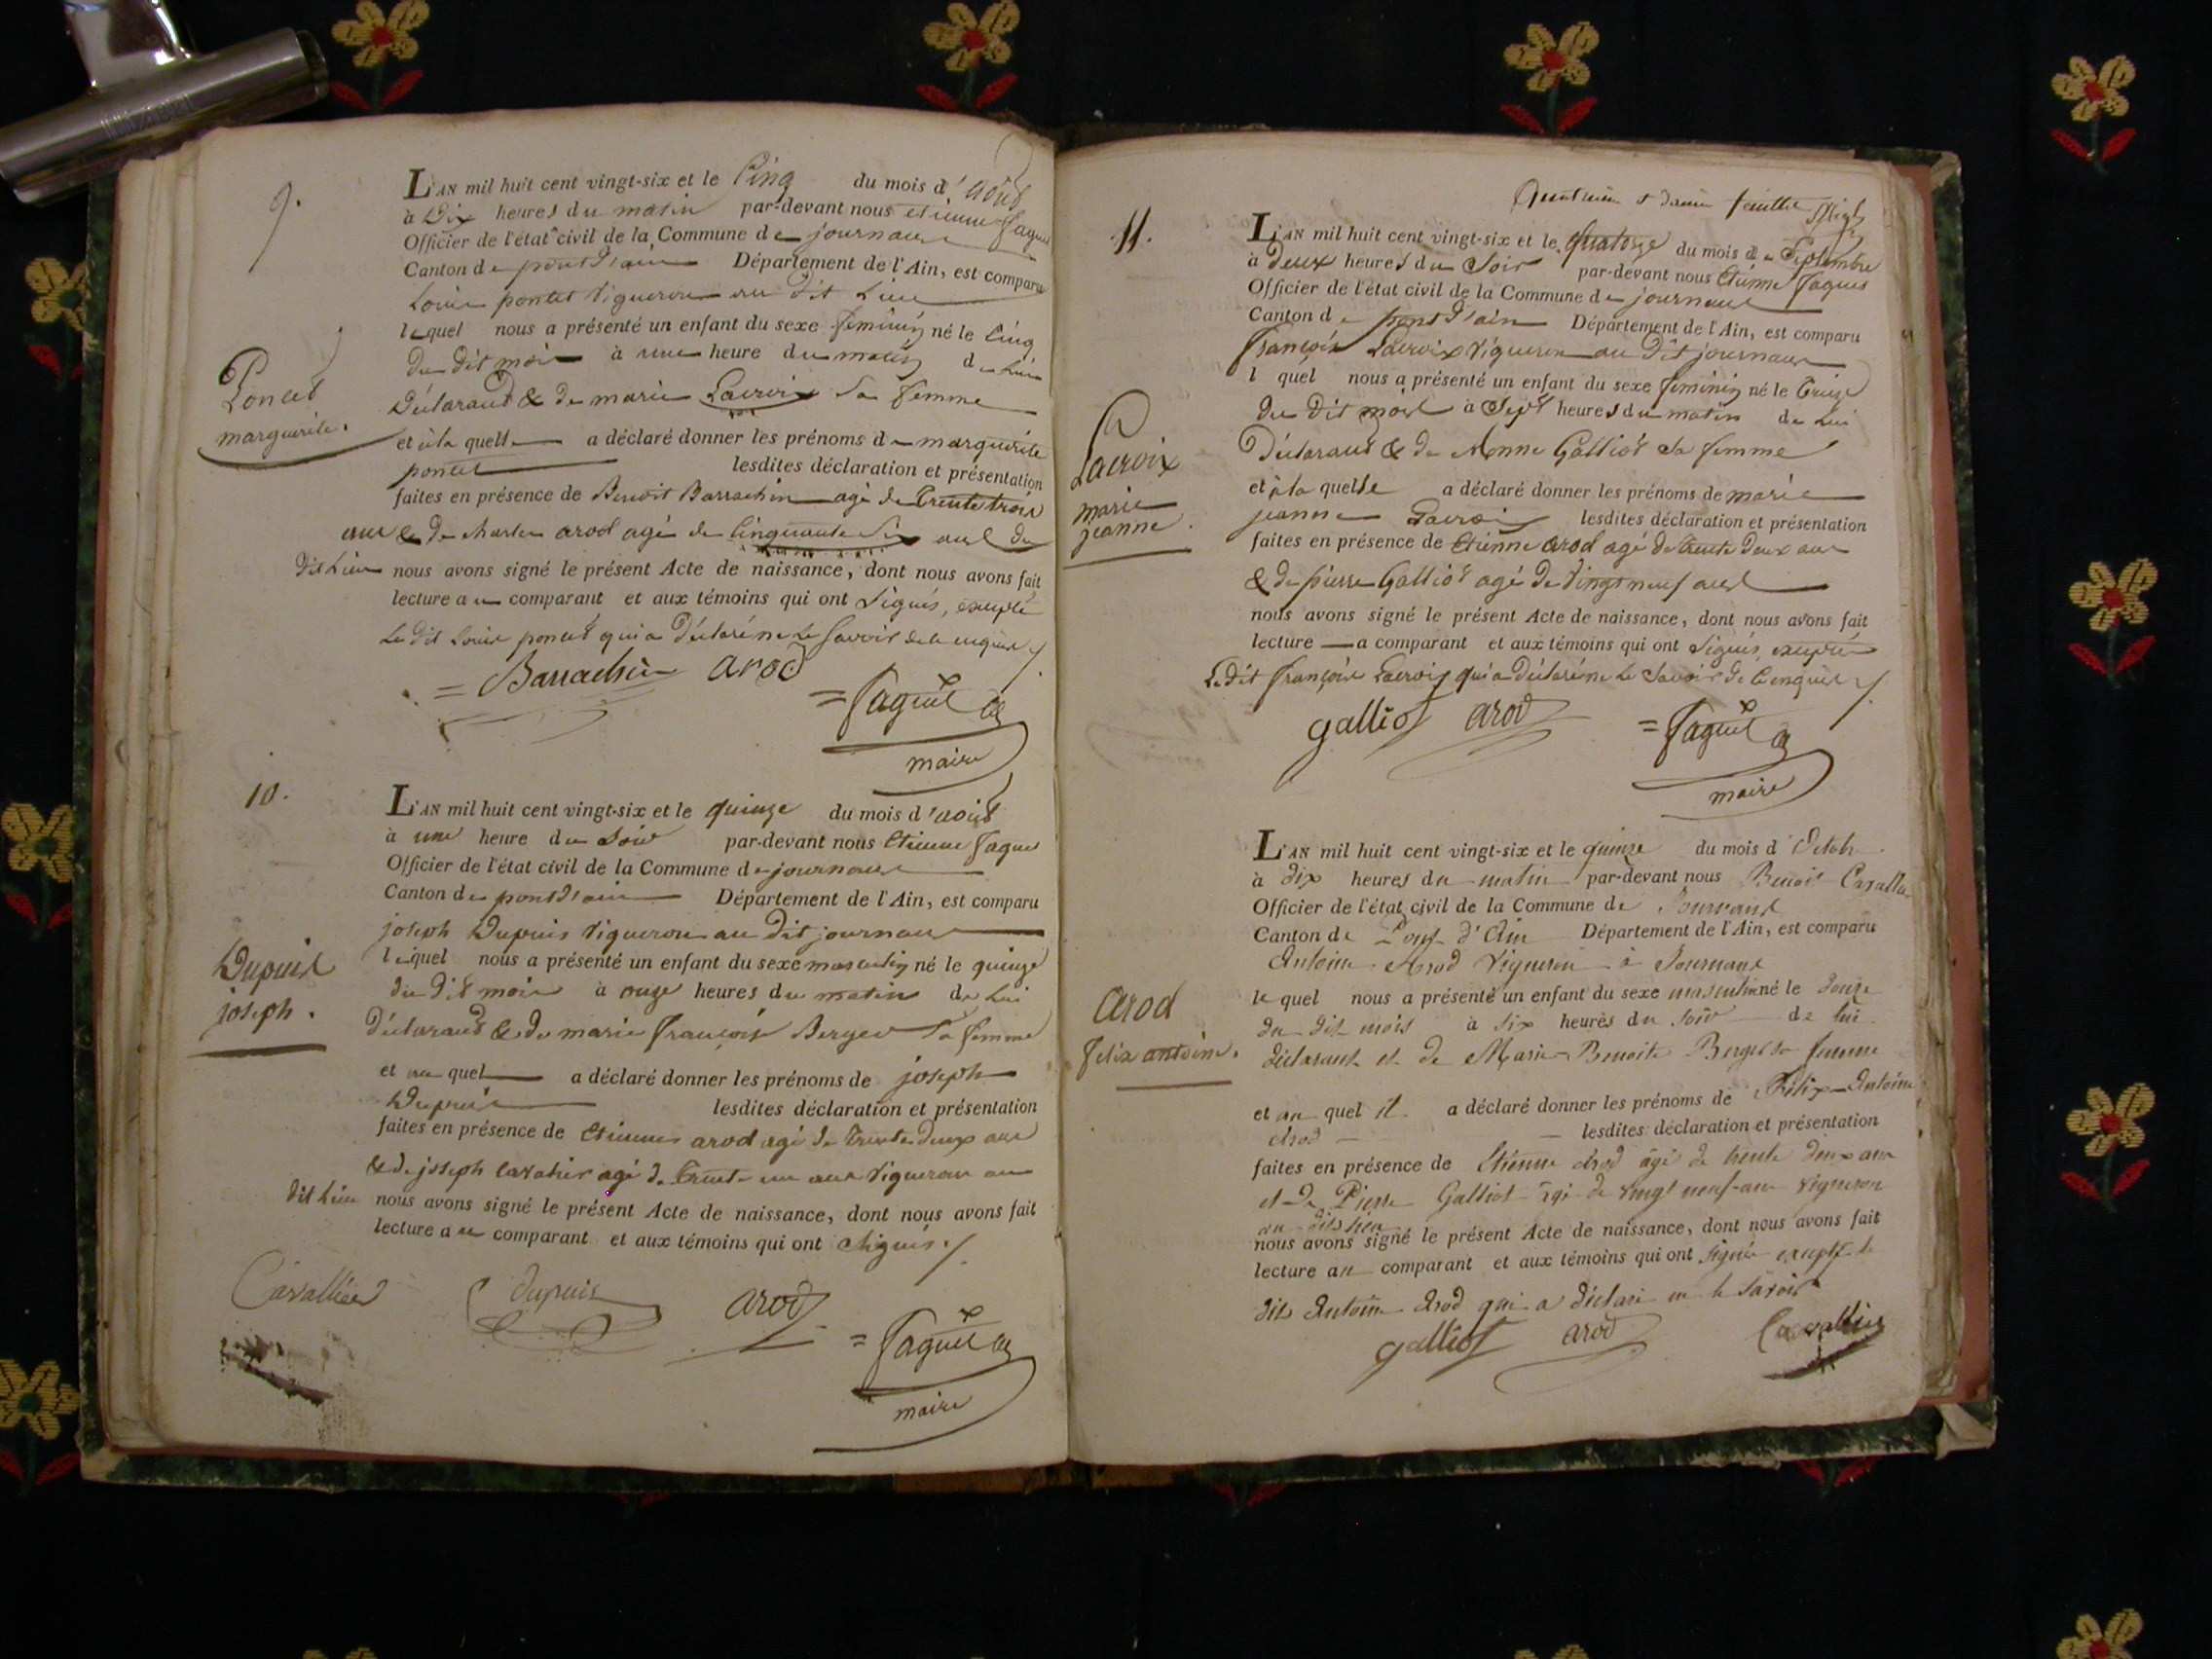 9.
L'AN mil huit cent vingt-six et le Cinq du mois d'août
à Dix heures du matin par-devant nous etienne faguet
Officier de l'état civil de la Commune de journaux
Canton de pont d'ain Département de l'Ain, est comparu
Louis poncet vigneron au dit Lieu
lequel nous a présenté un enfant du sexe feminin né le Cinq
du dit mois à une heure du matin de Lui
Déclarand & de marie Lacroix Sa femme
Poncet
marguerite.
et à la quelle a déclaré donner les prénoms de marguerite
poncet lesdites déclaration et présentation
faites en présence de Benoit Barrachin agé de Trente trois
ans & de Charles arod agé de Cinquante Six ans du
dit Lieu nous avons signé le présent Acte de naissance, dont nous avons fait
lecture au comparant et aux témoins qui ont Signés, excepté
Le dit Louis poncet qui a Déclaré ne Le Savoir de ce enquis
= Barrachin arod
= faguet
maire
10.
L'AN mil huit cent vingt-six et le quinze du mois d'août
à une heure du Soir par-devant nous Etienne faguet
Officier de l'état civil de la Commune de journaux
Canton de pont d'ain Département de l'Ain, est comparu
joseph Dupuis vigneron au Dit journaux
lequel nous a présenté un enfant du sexe masculin né le quinze
du Dit mois à onze heures du matin de Lui
Déclarand & de marie françoise Berger Sa femme
Dupuis
joseph.
et au quel a déclaré donner les prénoms de joseph
Dupuis lesdites déclaration et présentation
faites en présence de Etienne arod agé de Trente deux ans
& de joseph Cavalier agé de Trente un ans vigneron au
dit Lieu nous avons signé le présent Acte de naissance, dont nous avons fait
lecture au comparant et aux témoins qui ont Signés.
Cavallier dupuis arod
= faguet
maire
feuillet
11.
L'AN mil huit cent vingt-six et le Quatorze du mois de Septembre
à Deux heures du Soir par-devant nous Etienne faguet
Officier de l'état civil de la Commune de journaux
Canton de pont d'ain Département de l'Ain, est comparu
françois Lacroix vigneron au Dit journaux
l quel nous a présenté un enfant du sexe feminin né le Treize
du dit mois à Sept heures du matin de Lui
Déclarand & de Galliot Sa femme
Lacroix
marie
jeanne.
et à la quelle a déclaré donner les prénoms de marie
jeanne Lacroix lesdites déclaration et présentation
faites en présence de Etienne arod agé de Trente deux ans
& de pierre Galliot agé de Vingt neuf ans
nous avons signé le présent Acte de naissance, dont nous avons fait
lecture a comparant et aux témoins qui ont Signés, excepté
Le dit françois Lacroix qui a Déclaré ne Le Savoir de ce enquis
galliot arod
= faguet
maire
L'AN mil huit cent vingt-six et le quinze du mois d'Octob
à dix heures du matin par-devant nous Benoit Cavallier
Officier de l'état civil de la Commune de Journaux
Canton de Pont d'Ain Département de l'Ain, est comparu
Antoine Arod vigneron à Journaux
lequel nous a présenté un enfant du sexe masculin né le douze
du dit mois à six heures du soir de lui
déclarant et de Marie Benoite Berger sa femme
arod
felix antoine.
et au quel il a déclaré donner les prénoms de Félix-Antoine
Arod lesdites déclaration et présentation
faites en présence de Etienne Arod âgé de trente deux ans
et de Pierre Galliot âgé de vingt neuf ans vigneron
au dits lieu
nous avons signé le présent Acte de naissance, dont nous avons fait
lecture au comparant et aux témoins qui ont signés excepté le
dits Antoine Arod qui a déclaré ne le savoir
galliot arod Cavallier